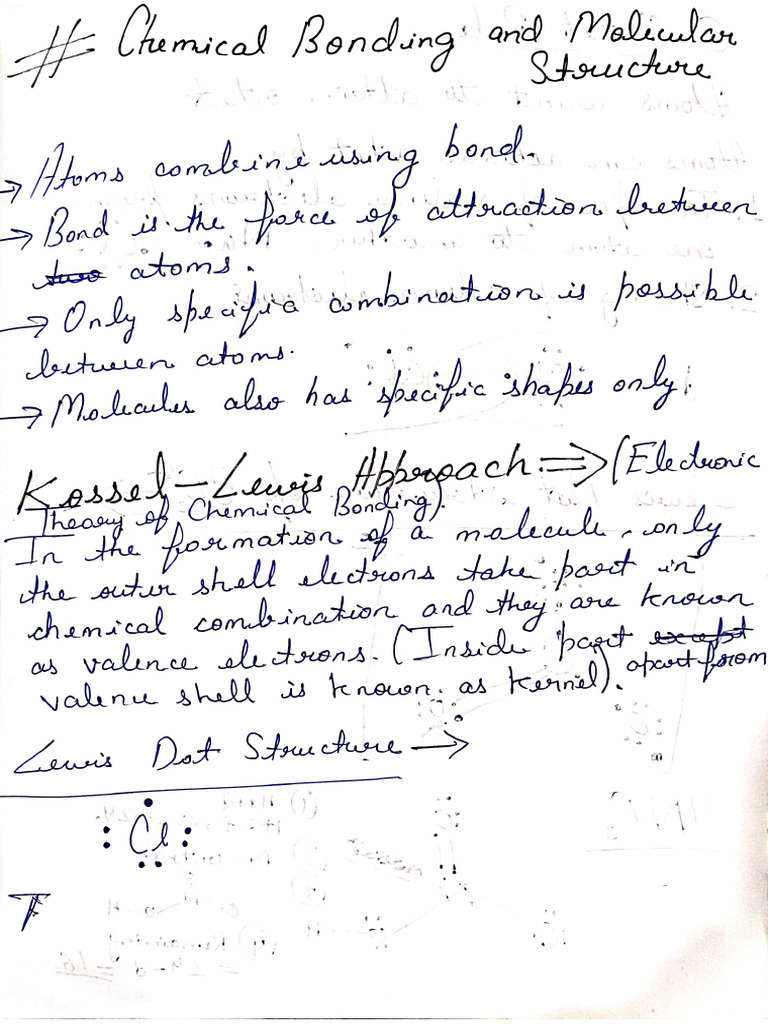 # Chemical Bonding and Molicular
Structure
→ Atoms combine using bond.
→ Bond is the force of attraction between
two atoms.
→ Only specific combination is possible
between atoms.
→ Molecules also has specific shapes only.
Kossel-Lewis Approach ⇒ (Electronic
Theory of Chemical Bonding).
In the formation of a molecule, only
the outer shell electrons take part in
chemical combination and they are known
as valence electrons. (Inside part except
apart from
valence shell is known as kernel).
Lewis Dot Structure →
Cl